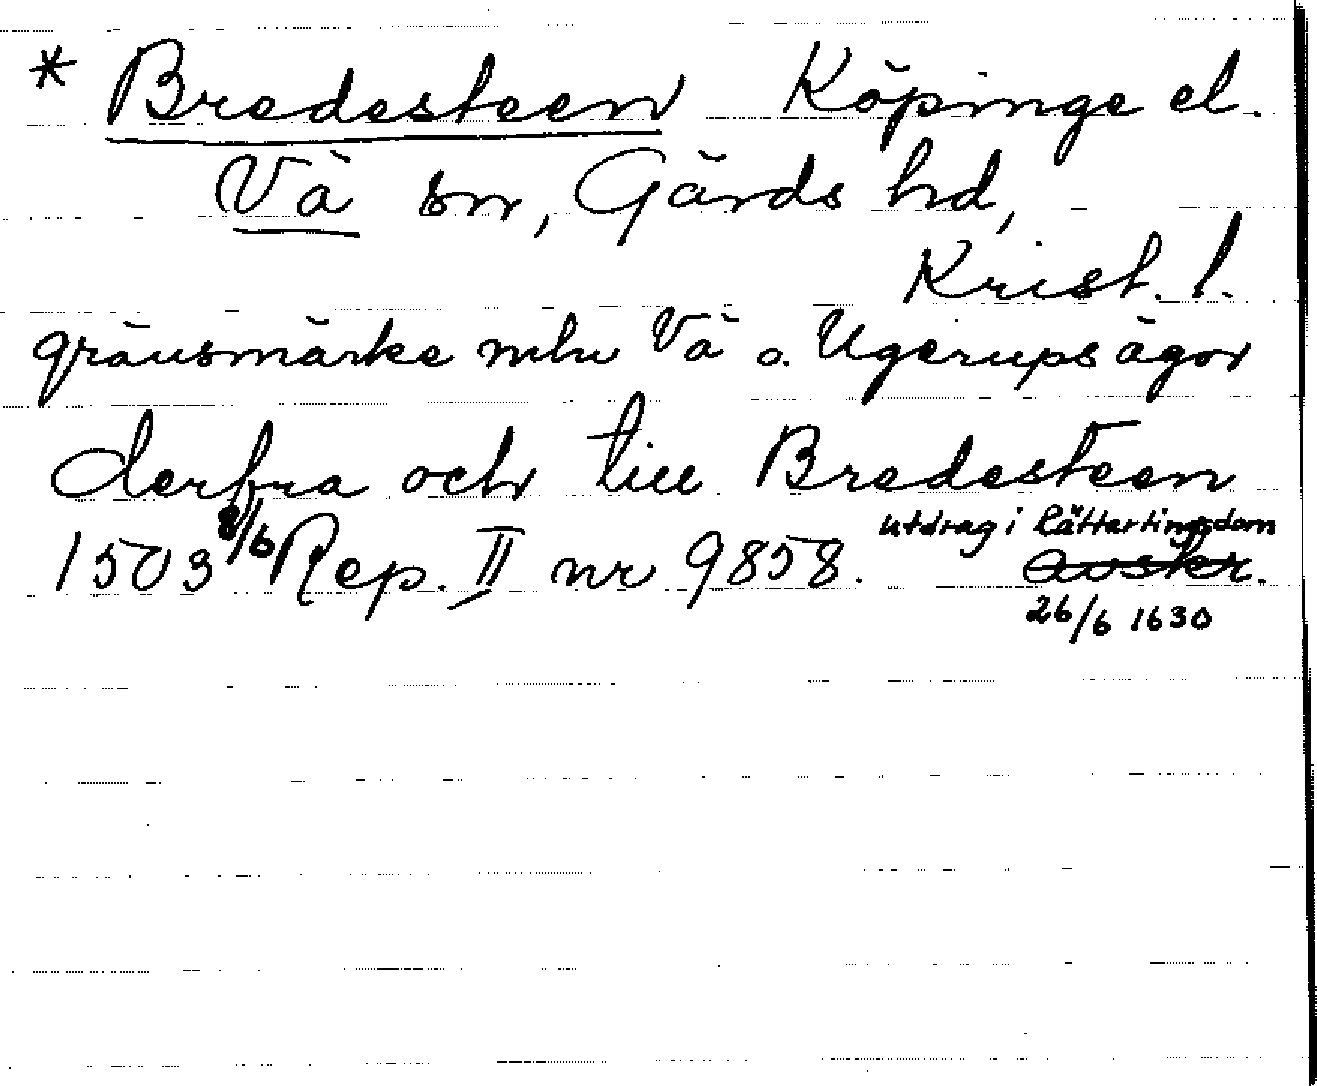 * Bredesteen Köpinge el.
Vä sn, Gärds hd,
Krist. l.
gränsmärke mln Vä o. Ugerups ägor
derfra och till Bredesteen
1503 8/6 Rep. II nr 9858. utdrag i Rättertingsdom
avskr.
26/6 1630